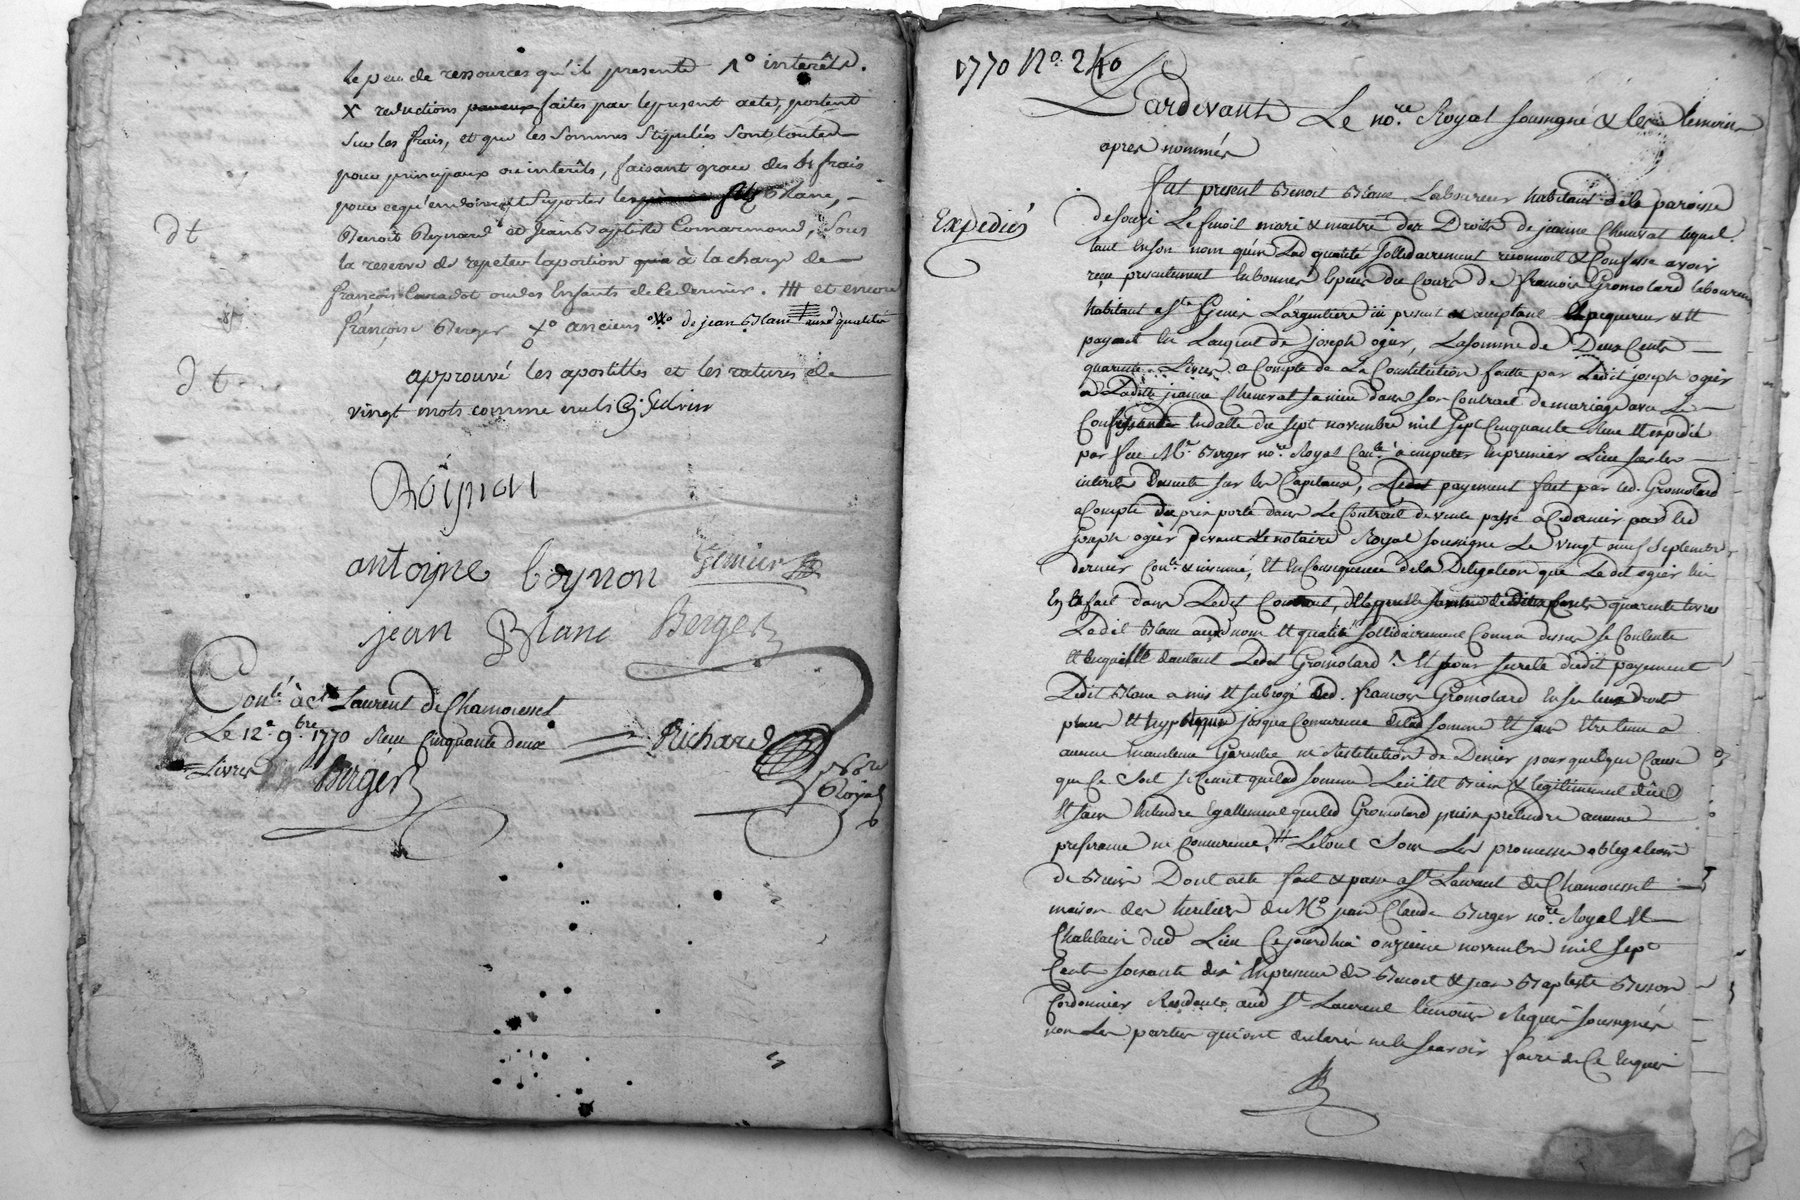 le peu de ressources qu'ils presente 1° interêts.
X reductions faites par le present acte, portent
sur les frais, et que les sommes stipulées sont toutes
pour principaux ou interêts, faisant grace des dts frais
pour ce qu'en doivent supporter les Blanc,
dt
Benoit Reynard et Jean Baptiste Comarmond, sous
la reserve de repeter la portion à la charge de
françois ou des Enfants de ce dernier. et encore
françoise Berger anciens de jean Blanc aux d qualités
dt
approuvé les apostilles et les ratures de
vingt mots comme nuls
antoine Coynon
jean Blanc Berger
Conlé à St Laurent de Chamousset
Le 12e 9bre 1770 Reçu Cinquante deux
Livres Berger
Richard
Royal
1770 No. 240
Pardevant Le nore Royal soussigné & les temoins
apres nommés
Expediés
fut present Benoit Blanc Laboureur habitant de la paroisse
de souzi mari & maitre des Droits de jeanne Chenevat lequel
tant en son nom qu'en Lad qualité sollidairement reconnoit & Confesse avoir
reçu presentement en bonnes Especes du Cours de françois Gromolard laboureur
habitant a Ste L'argentiere ici present & acceptant
payant en L'acquit de joseph ogier, La somme de Deux Cents
quarante Livres a Compte de La Constitution faitte par Ledit joseph ogier
a Laditte jeanne Chenevat sa niece dans son Contract de mariage avec Le
Confessant en datte du sept novembre mil sept Cinquante neuf et expedié
par feu Me Berger nore Royal Conlé à imputer en premier Lieu sur les
interêts Ensuite sur les Capitaux, Ledit payement fait par led. Gromolard
a Compte du prix porté dans Le Contract de vente passé a Ce dernier par led
joseph ogier devant Le notaire Royal soussigné Le vingt neuf septembre
dernier Conlé & insinué, et en Consequence de la Deligation que Le dit ogier lui
En a fait dans Ledit Contract, de laquelle somme de deux Cents quarante livres
Ledit Blanc aux d nom et qualité sollidairement Comme dessus se Contente
et en quitte d'autant Ledit Gromolard. Et pour sureté dudit payement
Ledit Blanc a mis et subrogé led. françois Gromolard en ses droits
place et hypotèque jusqua Concurrence de lad somme et sans être tenu a
aucune maintenue Garentie ni Restitution de Denier pour quelque Cause
que Ce soit si Ce n'est que lad somme Lui est Bien & legitimement düe
et sans Entendre Egallement que led Gromolard puisse pretendre aucune
preferance ni Concurrence, Le tout sous les promesses obligations
de Biens Dont acte fait & passé a St Laurent de Chamousset
maison des heritiers de Me jean Claude Berger nore Royal et
Chatelain dud Lieu Ce jourd'hui onzieme novembre mil sept
Cents soixante dix En presence de Benoit & jean Baptiste Buison
Cordonnier Residents aud St Laurent temoins Requis soussignés
non Les parties qui ont declaré ne le sçavoir faire de Ce Enquis